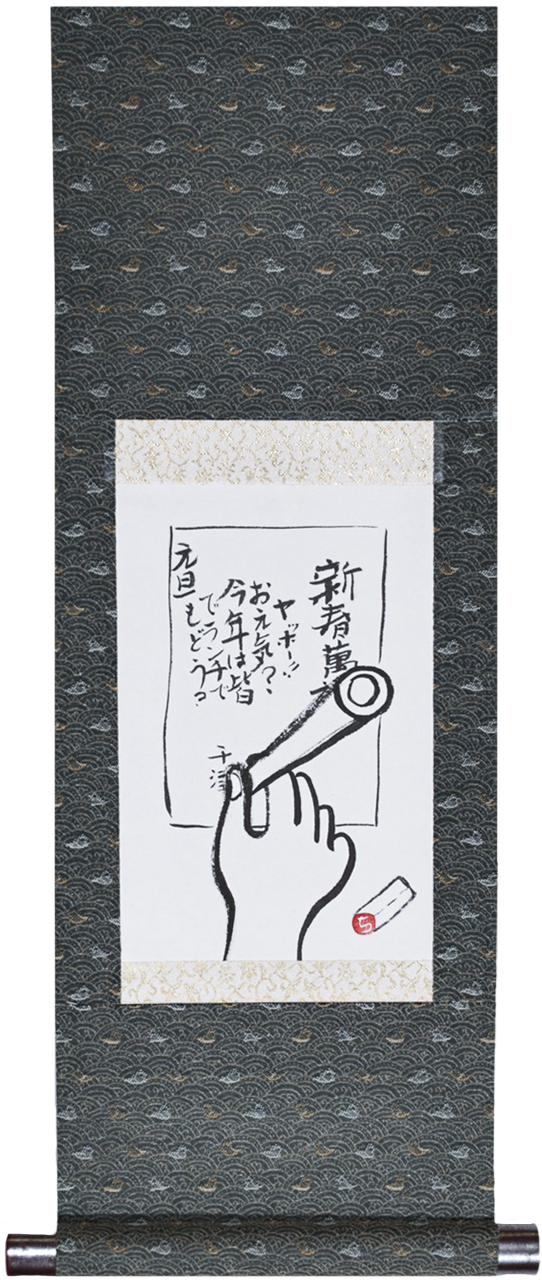 新春萬
ヤッホー!!
お元気?
今年は皆
でランチで
もどう?
元旦
千津
ち